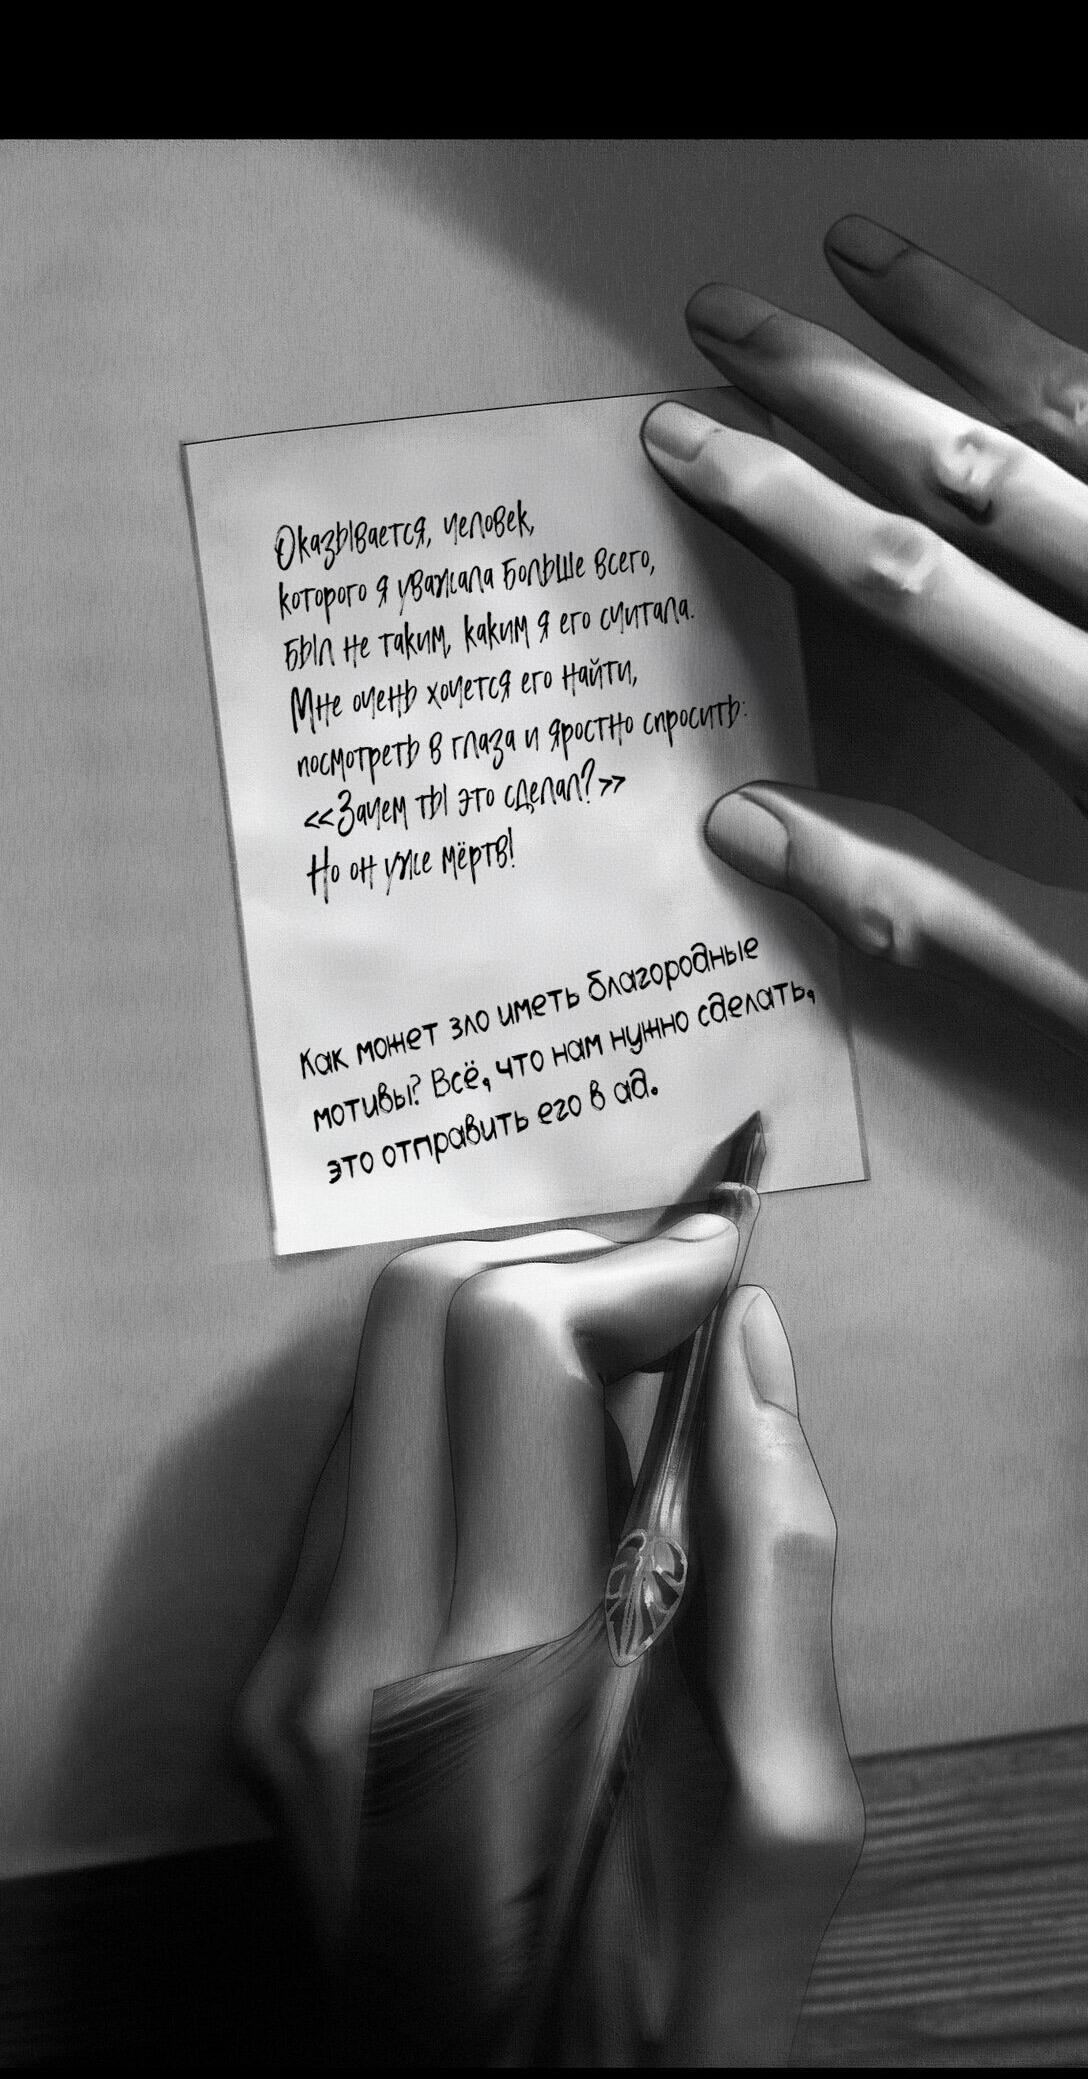 Оказывается, человек,
которого я уважала больше всего,
был не таким, каким я его считала.
Мне очень хочется его найти,
посмотреть в глаза и яростно спросить:
<<Зачем ты это сделал?>>
Но он уже мёртв!
Как может зло иметь благородные
мотивы? Всё, что нам нужно сделать,
это отправить его в ад.